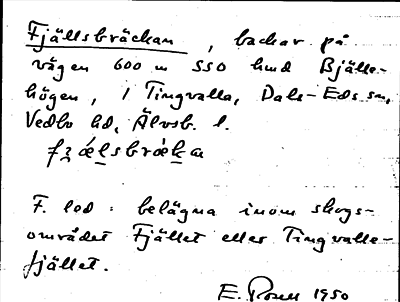 Fjällsbräckan, backar på
vägen 600 m SSO hmd Bjälle-
högen, i Tingvalla, Dals-Eds sn,
Vedbo hd, Älvsb. l.
fʒǽlsbrækan
F. lod: belägna inom skogs-
området Fjället eller Tingvalla-
fjället.
E. Rosell 1950